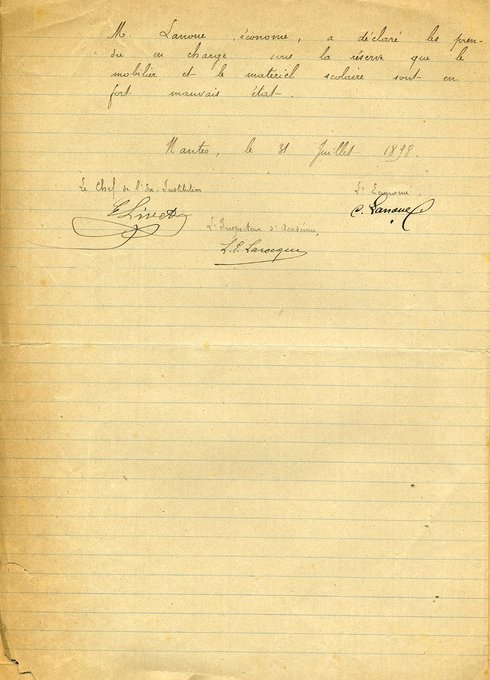 M. Lanoue, économe, a déclaré les pren-
dre en charge sous la réserve que le
mobilier et le matériel scolaire sont en
fort mauvais état.
Nantes, le 31 Juillet 1898.
Le Chef de l'Ex-Institution
L'Econome,
E Livet
C. Lanoue
L'Inspecteur d'Académie,
L. C. Larocque